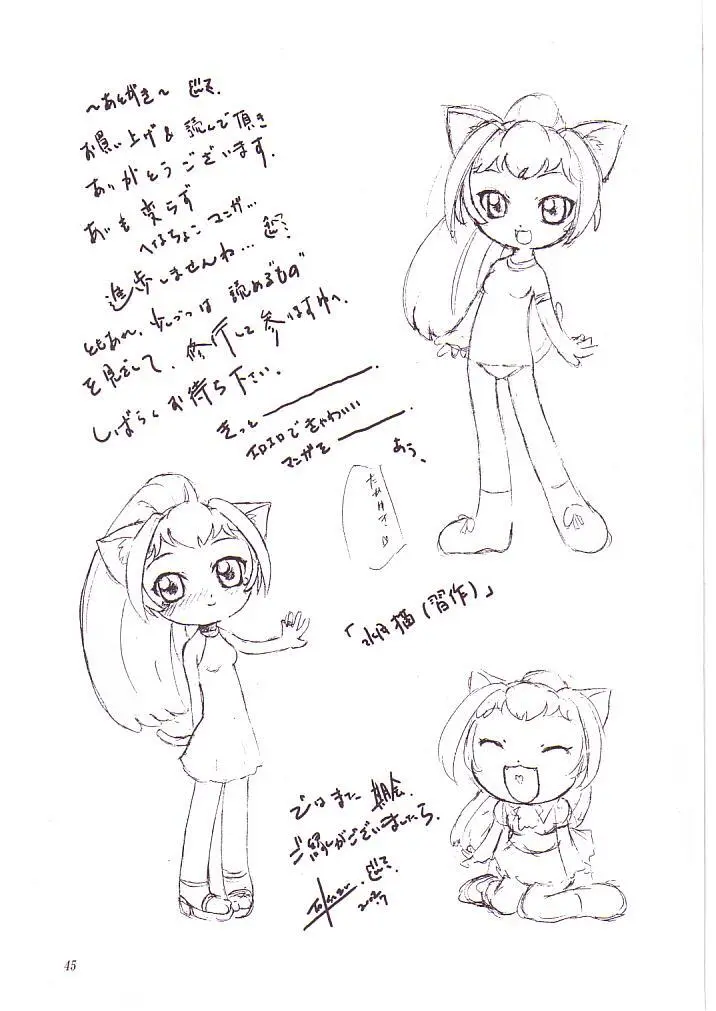 ～あとがき～
お買い上げ & 読んで頂き
ありがとうございます.
あいも変らず
へなちょこマンガ…
進歩しませんね…
ともあれ、少しづつは 読める"もの"
を見ざして、修行して参いますゆへ、
しばらくお待ち下さい.
きっと
エロエロできゃわいい
マンガを
あう、
「猫(習作)」
ではまた 期会.
ご縁がございましたら.
2002.7
45